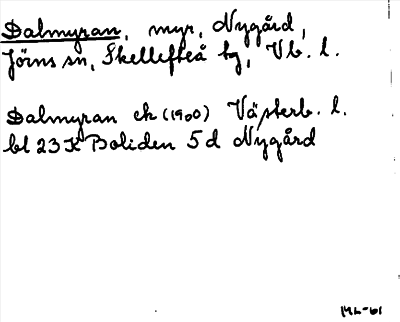 Dalmyran, myr, Nygård,
Jörns sn, Skellefteå tg, Vb. l.
Dalmyran ek (1900) Västerb. l.
bl 23 K Boliden 5 d Nygård
ML-61